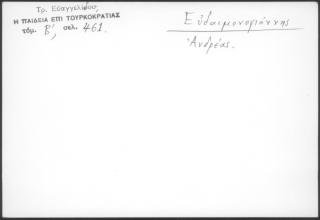 Τρ. Εὐαγγελίδου,
Η ΠΑΙΔΕΙΑ ΕΠΙ ΤΟΥΡΚΟΚΡΑΤΙΑΣ
τόμ. Β', σελ. 461.
Εὐδαιμονογιάννης
Ἀνδρέας.